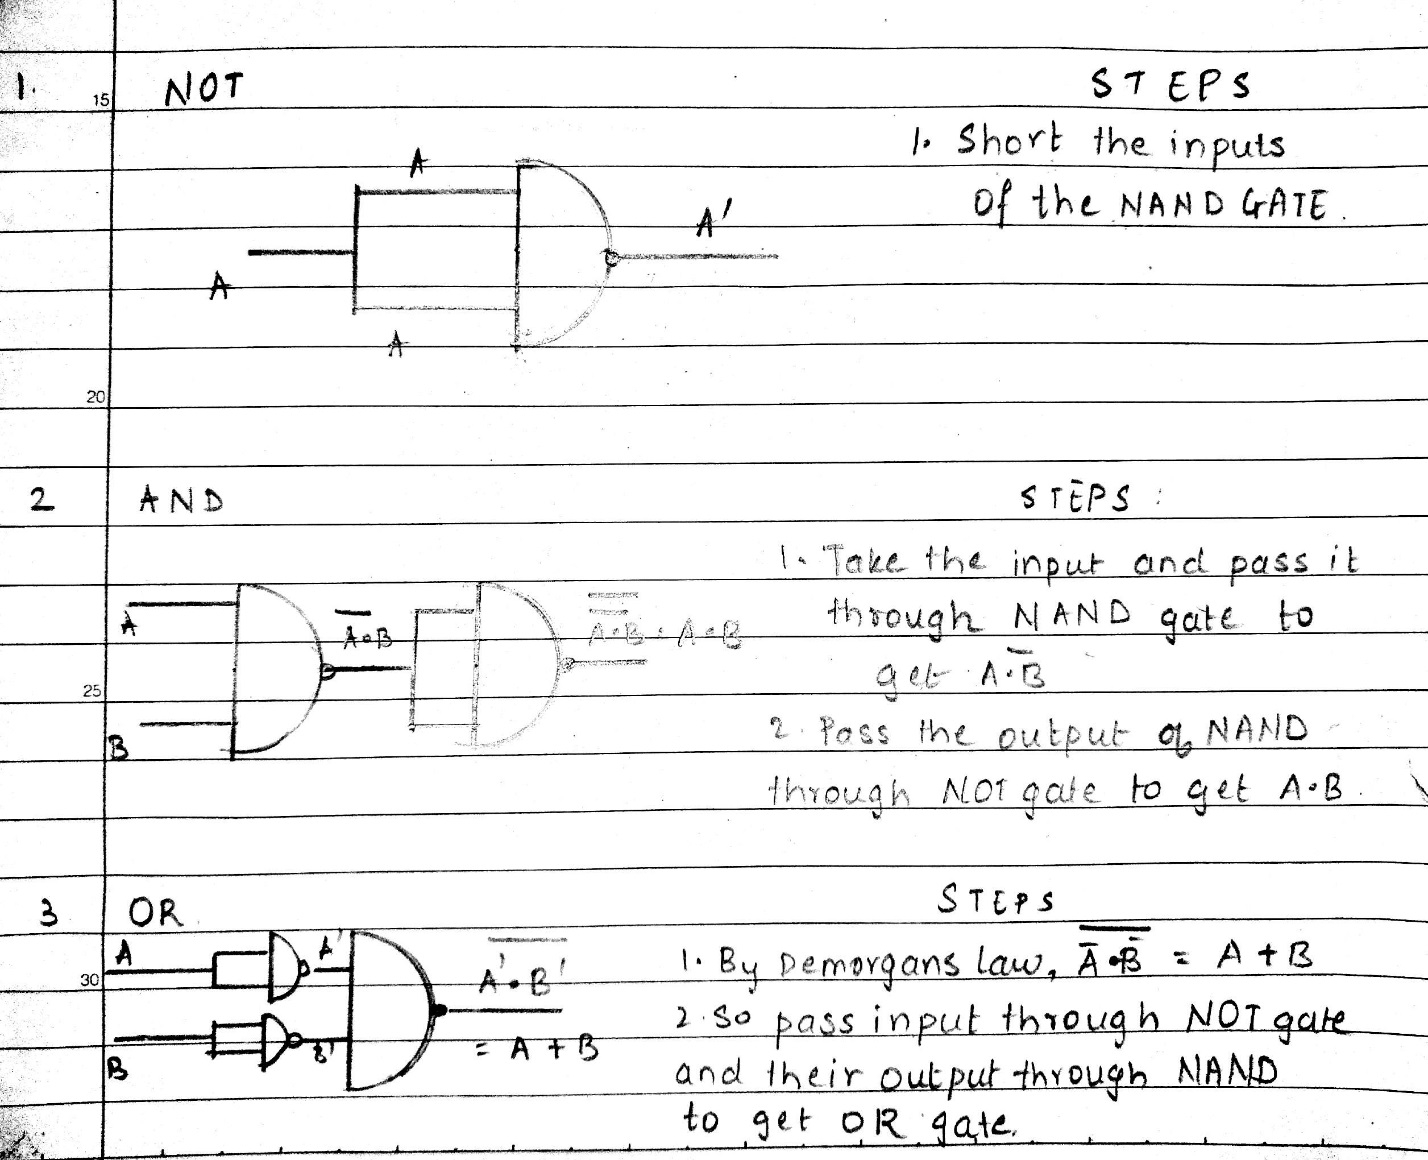 1. 15 NOT STEPS
1. Short the inputs
A
of the NAND GATE.
A'
A
A
20
2 AND STEPS :
1. Take the input and pass it
through NAND gate to
A A̅•̅B̅ A̿•̿B̿ = A•B
get A̅•̅B̅
25
2. Pass the output of NAND
B
through NOT gate to get A•B.
3 OR STEPS
A A'
1. By Demorgans law, A̅•B̅ = A + B
30 A'•B'
2. So pass input through NOT gate
B B' = A + B
and their output through NAND
to get OR gate.